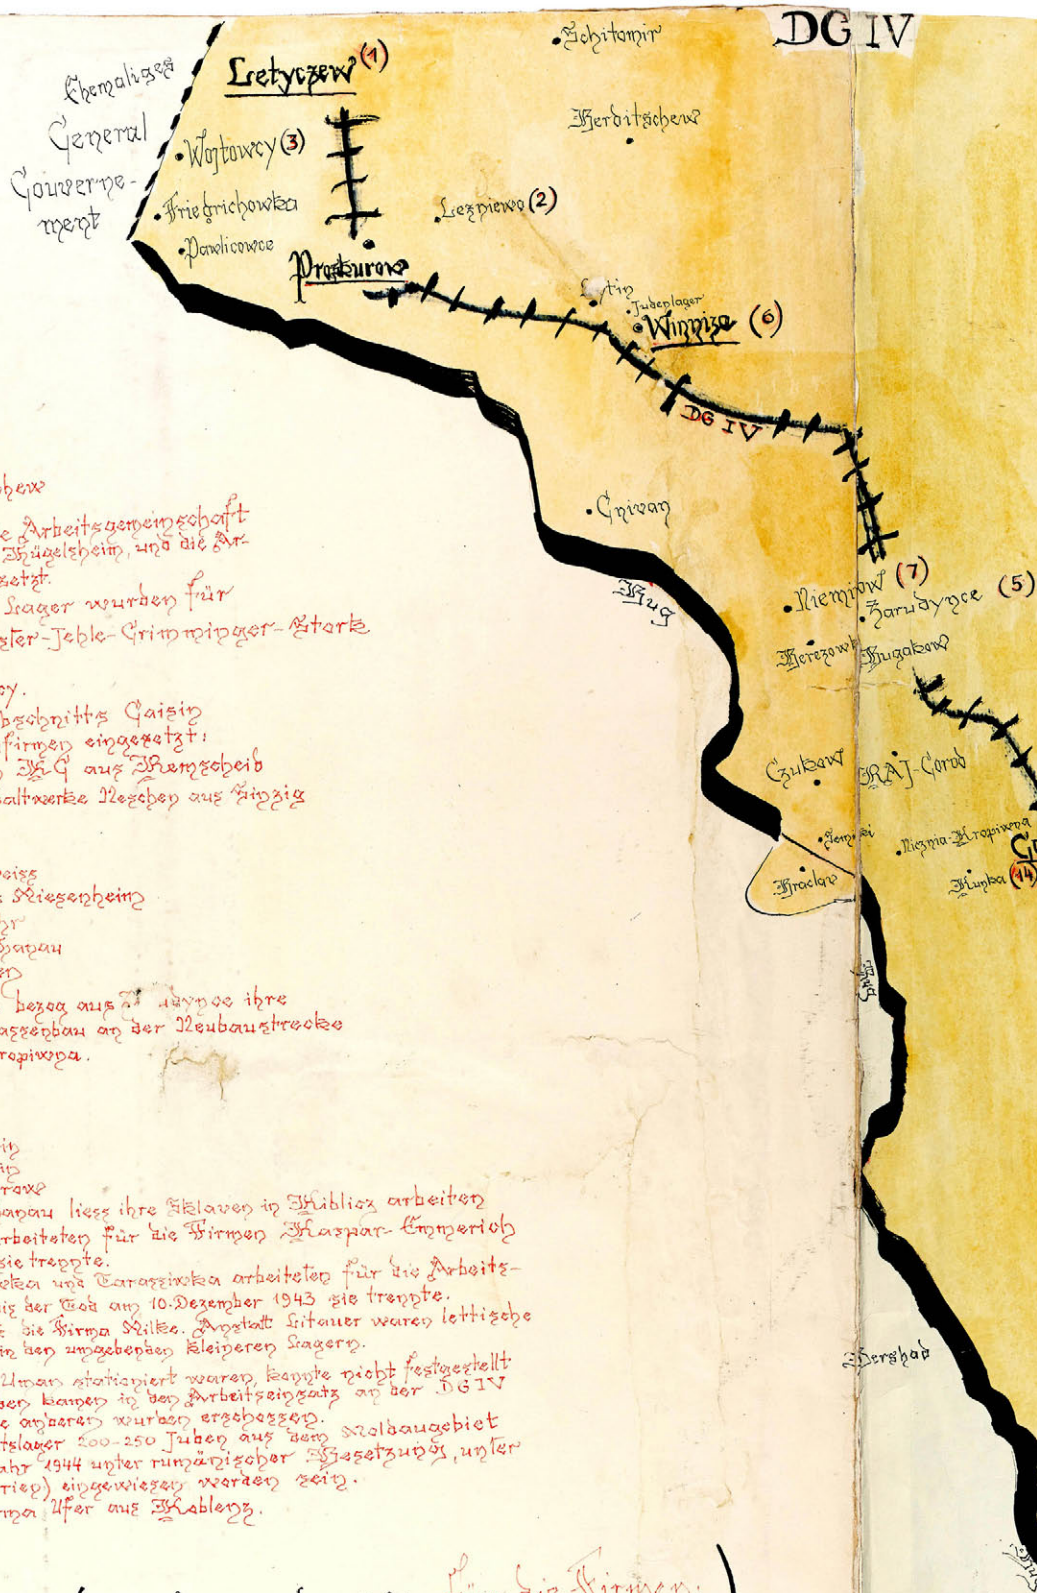 DG IV
Schitomir
Ehemaliges
General
Gouverne-
ment
Letyczew (1)
Berditschew
Wojtowcy (3)
Friedrichowka
Lezniewo (2)
Pawlicowce
Proskurow
Judenlager
Winniza (6)
DG IV
Gniwan
Bug
Niemirow (7)
Zarudynce (5)
Bugakow
Czukow
RAJ-Gorod
Niznia-Kropiwna
Kunka (14)
Braclaw
Bug
Bershad
hew
e Arbeitsgemeinschaft
Hügelsheim, und die Ar-
setzt.
Lager wurden für
ster-Jehle-Grimminger-Stork
oy.
bschnitts Gaisin
firmen eingesetzt:
KG aus Remscheid
altwerke Neschen aus Sinzig
eiss
Niesenheim
hr
Hanau
en
bezog aus ihre
assenbau an der Neubaustrecke
ropiwna.
in
in
row
anau liess ihre Sklaven in Kiblicz arbeiten
rbeiteten für die Firmen Kaspar-Emmerich
sie trennte.
ka und Tarassiwka arbeiteten für die Arbeits-
is der Tod am 10. Dezember 1943 sie trennte.
die Firma Milke. Anstatt Litauer waren lettische
in den umgebenden kleineren Lagern.
Uman stationiert waren, konnte nicht festgestellt
den kamen in den Arbeitseinsatz an der DG IV
e anderen wurden erschossen.
tslager 200-250 Juden aus dem Moldaugebiet
ahr 1944 unter rumänischer Besetzung, unter
rien) eingewiesen worden sein.
ma Ufer aus Koblenz.
die Firmen.